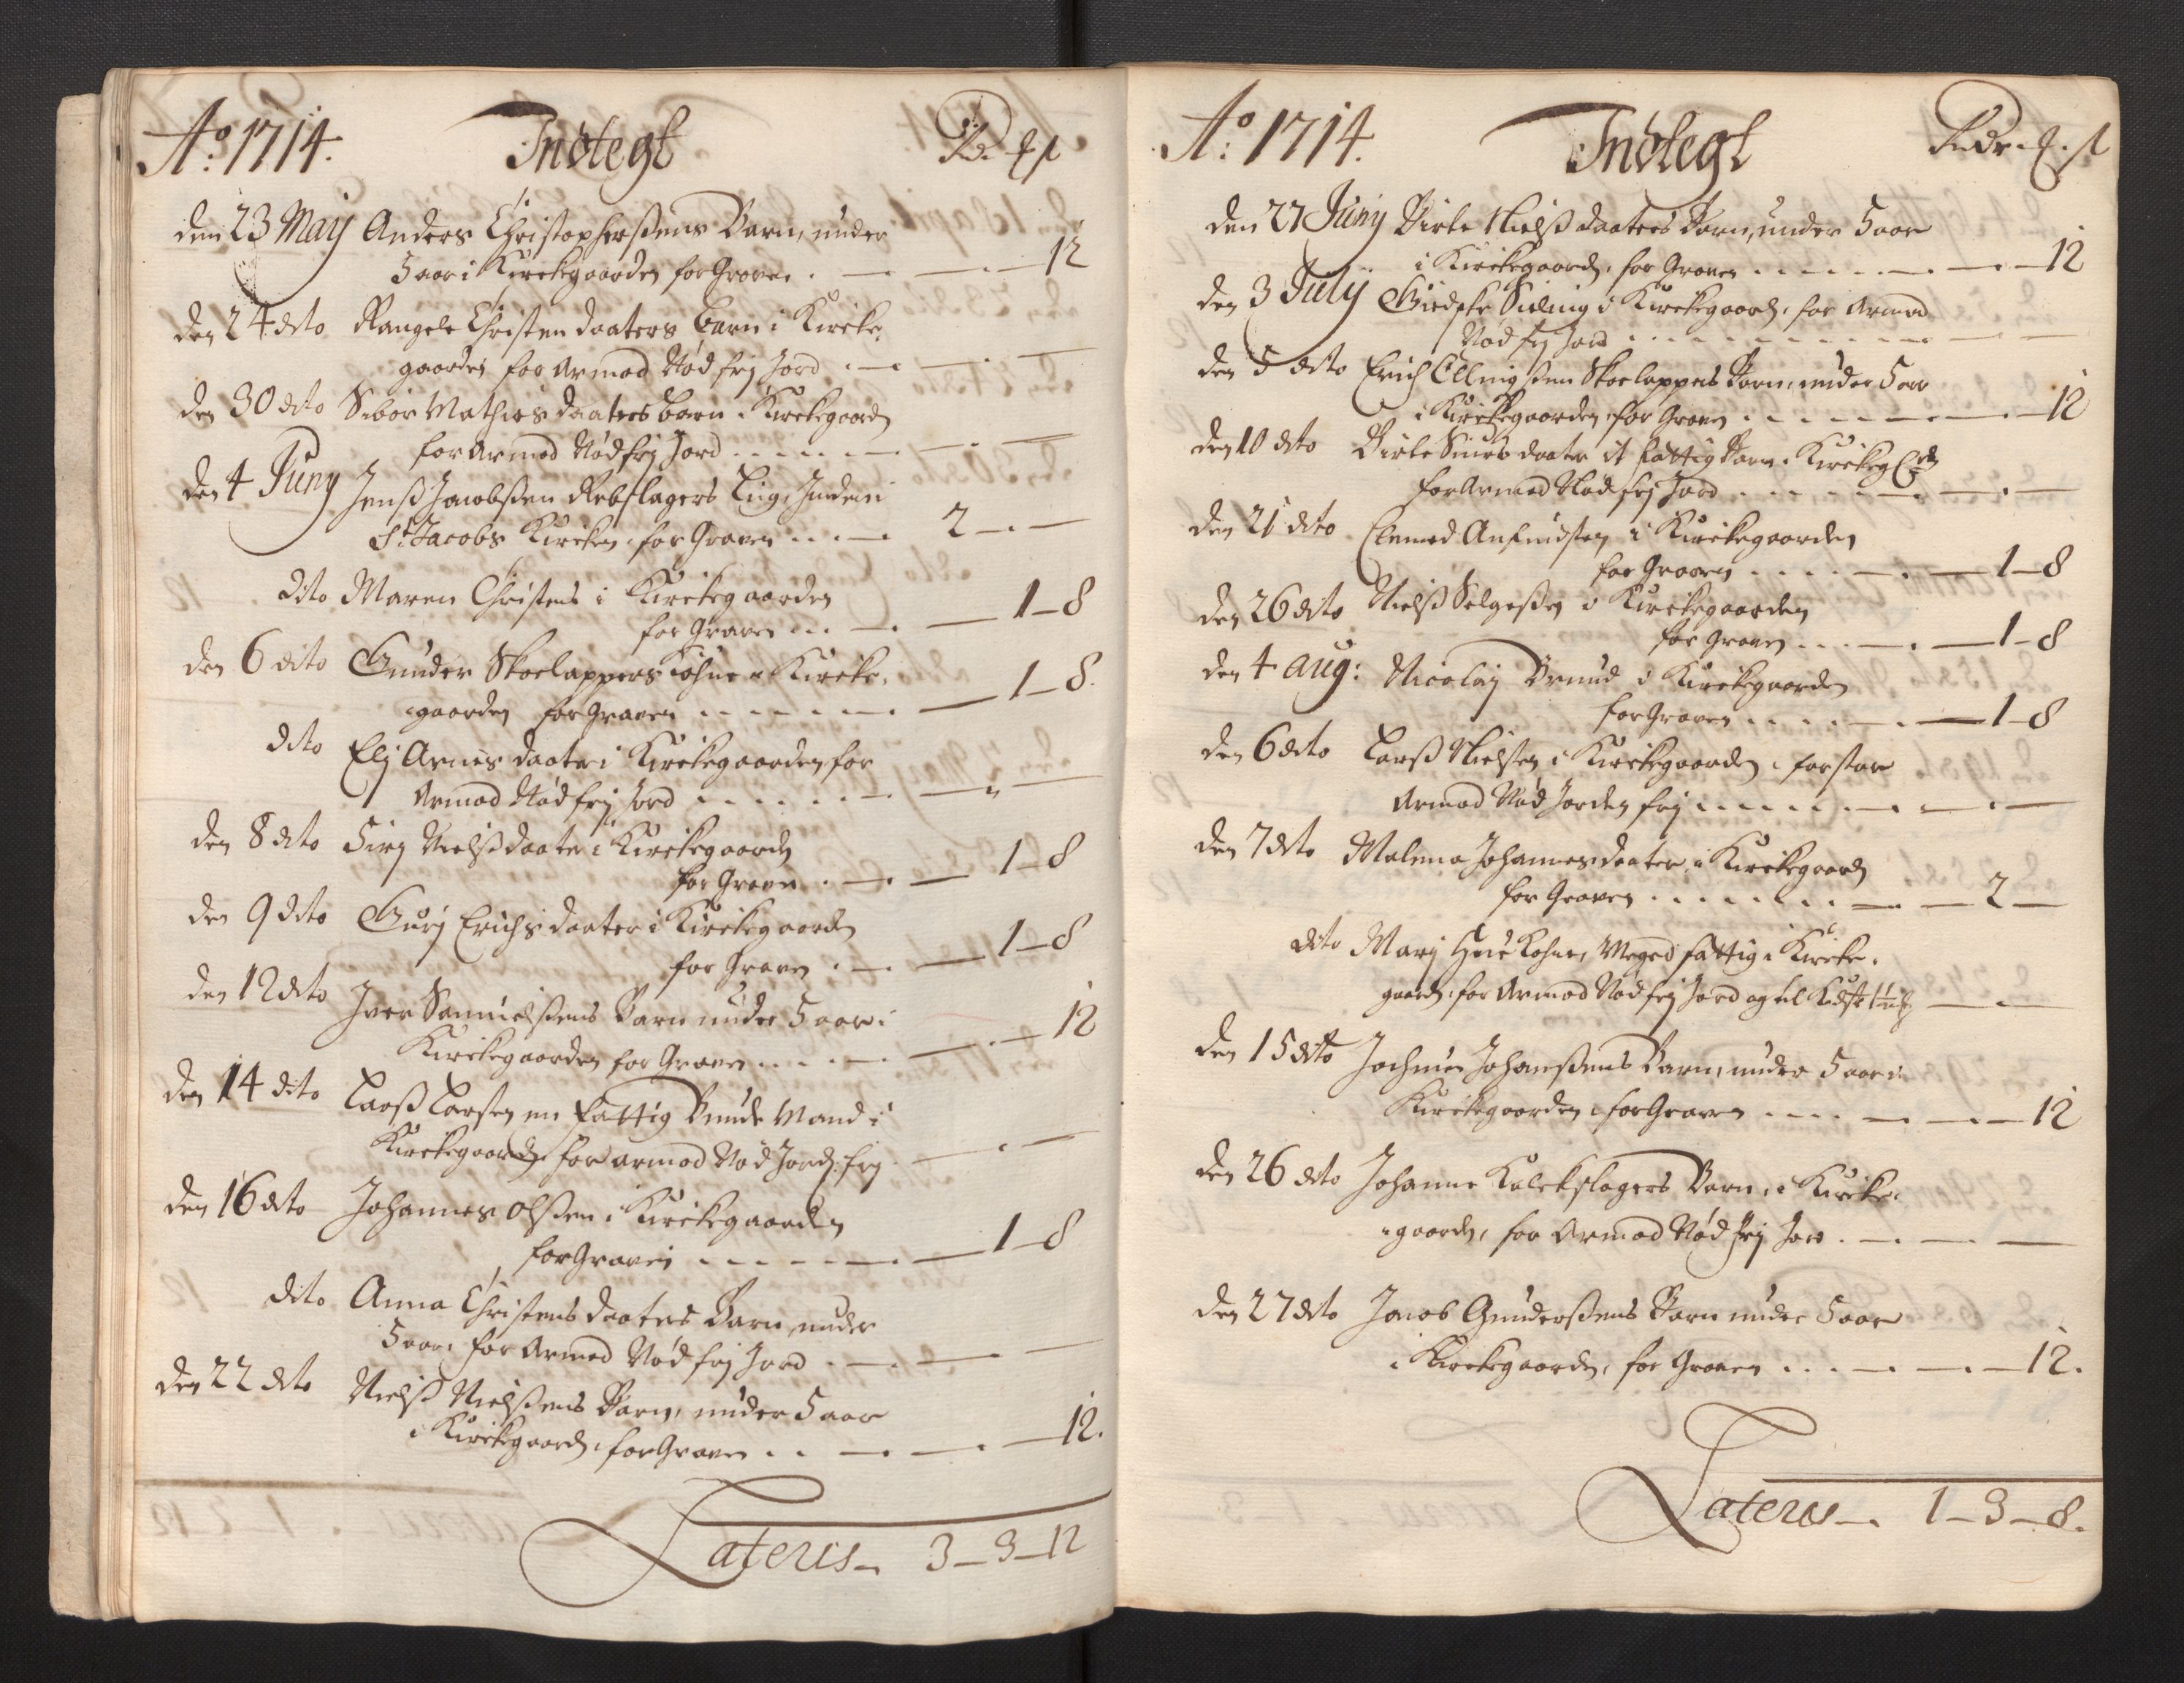 Ao: 1714. Indtegt Rd. ₻ ß
den 23 Maij Anders Christophersens Barn, under
5 aar i Kirckegaarden for Graven . — — 12
den 24 dito Rangele Christen daaters barn i Kircke,
gaarden for Armod Nød frj Jord . — . —
den 30 dito Sebør Mathies daaters barn i Kirckegaard
for Armod Nød frj Jord . . . — . —
den 4 Junij Jenß Jacobsen Rebslagers Liig, Inden i
St: Jacobs Kircken for Graven . . — 2 — . —
dito Maren Christens i Kirckegaarden
for Graven . . — . — 1 — 8
den 6 dito Gunder Skoelappers Kohne i Kircke,
gaarden for Graven . . . . — 1 — 8.
dito Elj Arnes daater i Kirckegaarden for
Armod Nød frj Jord . . . . — . —
den 8 dito Sirj Nielß daater i Kirckegaard
for Graven . — . — 1 — 8
den 9 dito Gurj Erichs daater i Kirckegaarden
for Graven . — . — 1 — 8
den 12 dito Iver Samuelsens Barn under 5 aar i
Kirckegaarden for Graven . . . — . — 12
den 14 dito Larß Larsen en fattig Mand i
Kirckegaard for armod Nød Jord frj — . —
den 16 dito Johannes Olsen i Kirckegaarden
for Graven . . . — — 1 — 8
dito Anna Christens daaters Barn, under
5 aar, for Armod Nød frj Jord . — . —
den 22 dito Nielß Nielßens Barn, under 5 aar
i Kirckegaard for Graven . . — . — 12.
Lateris — 3 — 3 — 12
Ao: 1714. Indtegt Rdr. ₻. ß
den 27 Junij Birte Nielß daaters Barn, under 5 aar
i Kirckegaard, for Graven . . . . — . — 12
den 3 Julij i Kirckegaard, for Armod
Nød frj Jord . . . . . . — —
den 5 dito Erich Ellingsen Skoelappers Barn, under 5 aar
i Kirckegaarden for Graven . . . . — . — 12
den 10 dito Birte Siurs daater it fattig Barn i Kirckeg
for Armod Nød frj Jord . . . . — . —
den 21 dito Clemed Anfindsen i Kirckegaarden
for Graven . . . . — . — 1 — 8
den 26 dito Nielß Helgesen i Kirckegaarden
for Graven . . . — . — 1 — 8
den 4 Aug: Nicolaj i Kirckegaarden
for Graven . . . . — . — 1 — 8
den 6 dito Larß Nielsen i Kirckegaarden, for stor
Armod Nød Jorden frj . . . . — . —
den 7 dito Malena Johannes daater, i Kirckegaard
for Graven . . . . . . — — 2 —
dito Marj Kohne, Meged fattig i Kircke,
gaard, for Armod Nød frj Jord og til — . —
den 15 dito Jochum Johansens Barn, under 5 aar i
Kirckegaarden for Graven . . . — . — 12
den 26 dito Johanne Kalckslagers Barn, i Kircke,
gaarden, for Armod Nød frj Jord . — . —
den 27 dito Jacob Gundersens Barn under 5 aar
i Kirckegaarden, for Graven . . . — . — 12.
Lateris — . 1 — 3 — 8.